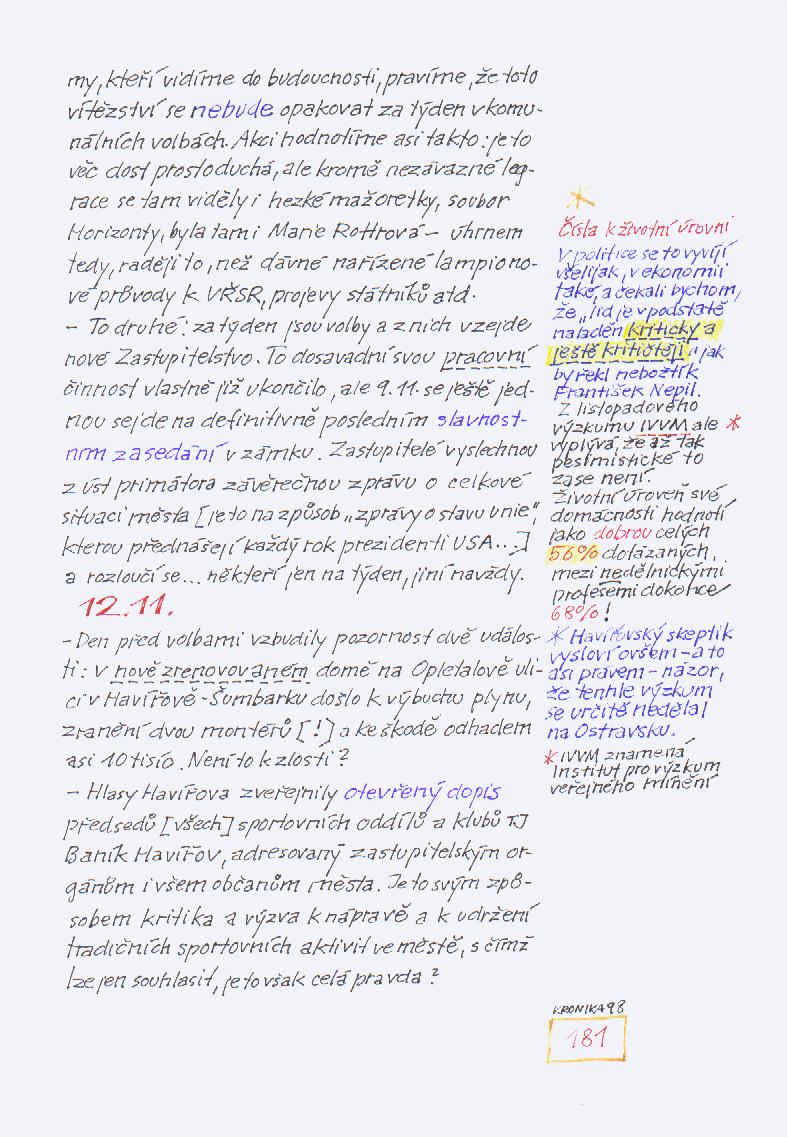 my, kteří vidíme do budoucnosti, pravíme, že toto
vítězství se nebude opakovat za týden v komu-
nálních volbách. Akci hodnotíme asi takto: je to
věc dost prostoduchá, ale kromě nezávazné leg-
race se tam viděly i hezké mažoretky, soubor
Horizonty, byla tam i Marie Rottrová - úhrnem
tedy, raději to, než dávné nařízené lampiono-
vé průvody k VŘSR, projevy státníků atd.
- To druhé: za týden jsou volby a z nich vzejde
nové Zastupitelstvo. To dosavadní svou pracovní
činnost vlastně již ukončilo, ale 9.11. se ještě jed-
nou sejde na definitivně posledním slavnost-
ním zasedání v zámku. Zastupitelé vyslechnou
z úst primátora závěrečnou zprávu o celkové
situaci města [je to na způsob „zprávy o stavu unie“,
kterou přednášejí každý rok prezidenti USA...]
a rozloučí se... někteří jen na týden, jiní navždy.
12.11.
- Den před volbami vzbudily pozornost dvě událos-
ti: v nově zrenovovaném domě na Opletalově uli-
ci v Havířově - Šumbarku došlo k výbuchu plynu,
zranění dvou montérů [!] a ke škodě odhadem
asi 10 tisíc. Není to k zlosti?
- Hlasy Havířova zveřejnily otevřený dopis
předsedů [všech] sportovních oddílů a klubů TJ
Baník Havířov, adresovaný zastupitelským or-
gánům i všem občanům města. Je to svým způ-
sobem kritika a výzva k nápravě a k udržení
tradičních sportovních aktivit ve městě, s čímž
lze jen souhlasit, je to však celá pravda?
*
Čísla k životní úrovni
V politice se to vyvíjí
všelijak, v ekonomii
také, a čekali bychom,
že „lid je v podstatě
naladěn kriticky a
ještě kritičtěji“ jak
by řekl nebožtík
František Nepil.
Z listopadového
výzkumu IVVM ale *
vyplývá, že až tak
pesimistické to
zase není.
Životní úroveň své
domácnosti hodnotí
jako dobrou celých
56% dotázaných,
mezi nedělnickými
profesemi dokonce
68%!
* Havířovský skeptik
vysloví ovšem - a to
asi právem - názor,
že tenhle výzkum
se určitě nedělal
na Ostravsku.
* IVVM znamená
Institut pro výzkum
veřejného mínění
KRONIKA 98
181